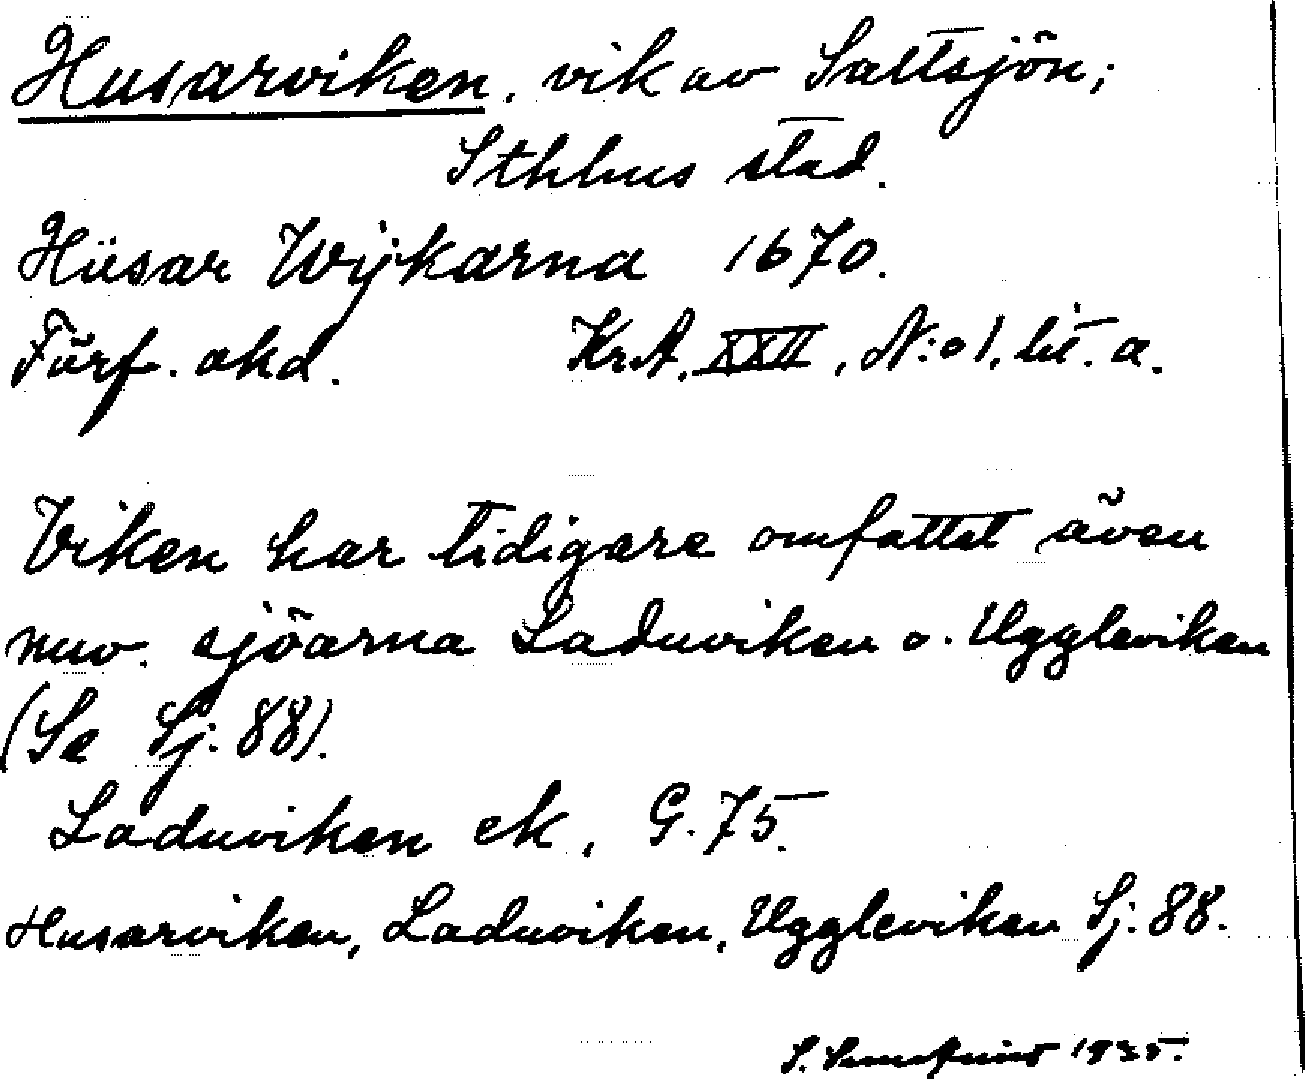 Husarviken, vik av Saltsjön;
Sthlms stad.
Hüsar Wijkarna 1670.
Förf. okd. KrA. XXII, N:o 1. lit. a.
Viken har tidigare omfattat även
nuv. sjöarna Laduviken o. Uggleviken
(Se Sj. 88).
Laduviken ek. G. 75.
Husarviken, Laduviken, Uggleviken Sj. 88.
S. 1935.